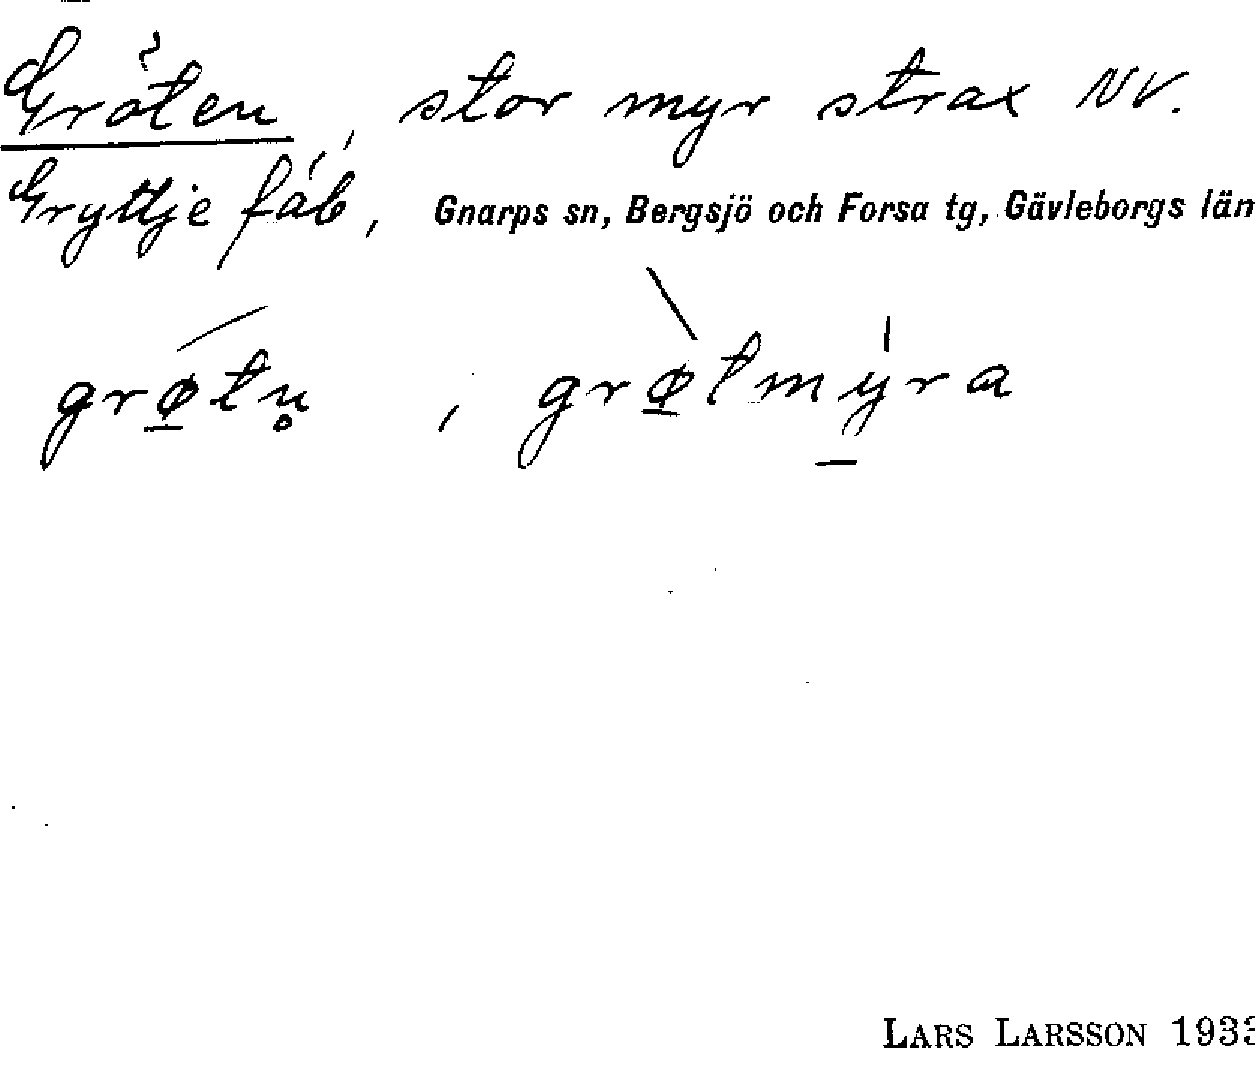 Gröten, stor myr strax NV.
Gryttje fäb, Gnarps sn, Bergsjö och Forsa tg, Gävleborgs län
grø̲tn̥, grø̲tmy̲ra
LARS LARSSON 1933